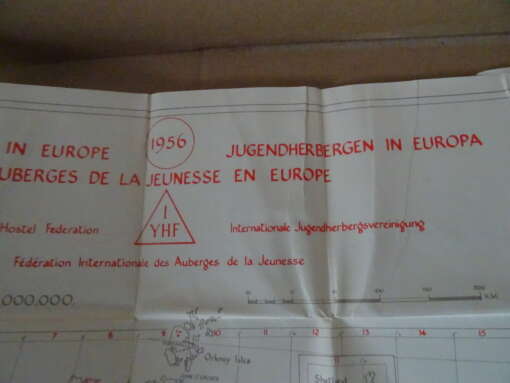 IN EUROPE 1956 JUGENDHERBERGEN IN EUROPA
AUBERGES DE LA JEUNESSE EN EUROPE
I
YHF
Hostel Federation Internationale Jugendherbergsvereinigung
Fédération Internationale des Auberges de la Jeunesse
000,000,
KM.
7 8 9 10 11 12 13 14 15
Orkney Isles
Shetland